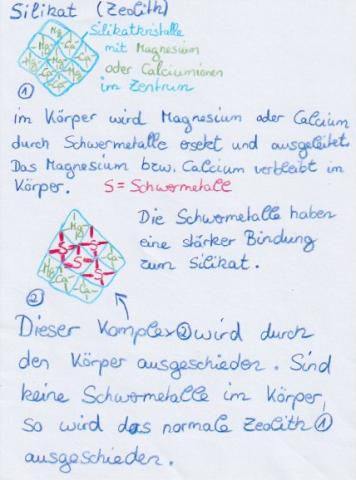 Silikat (Zeolith)
Silikatkristalle
mit Magnesium
oder Calciumionen
im Zentrum
Mg Ca Mg Ca
①
im Körper wird Magnesium oder Calcium
durch Schwermetalle ersetzt und ausgeleitet.
Das Magnesium bzw. Calcium verbleibt im
Körper. S = Schwermetalle
Die Schwermetalle haben
eine stärker Bindung
zum Silikat.
Mg S S S S Ca Mg Ca
②
Dieser Komplex ② wird durch
den Körper ausgeschieden. Sind
keine Schwermetalle im Körper,
so wird das normale Zeolith ①
ausgeschieden.